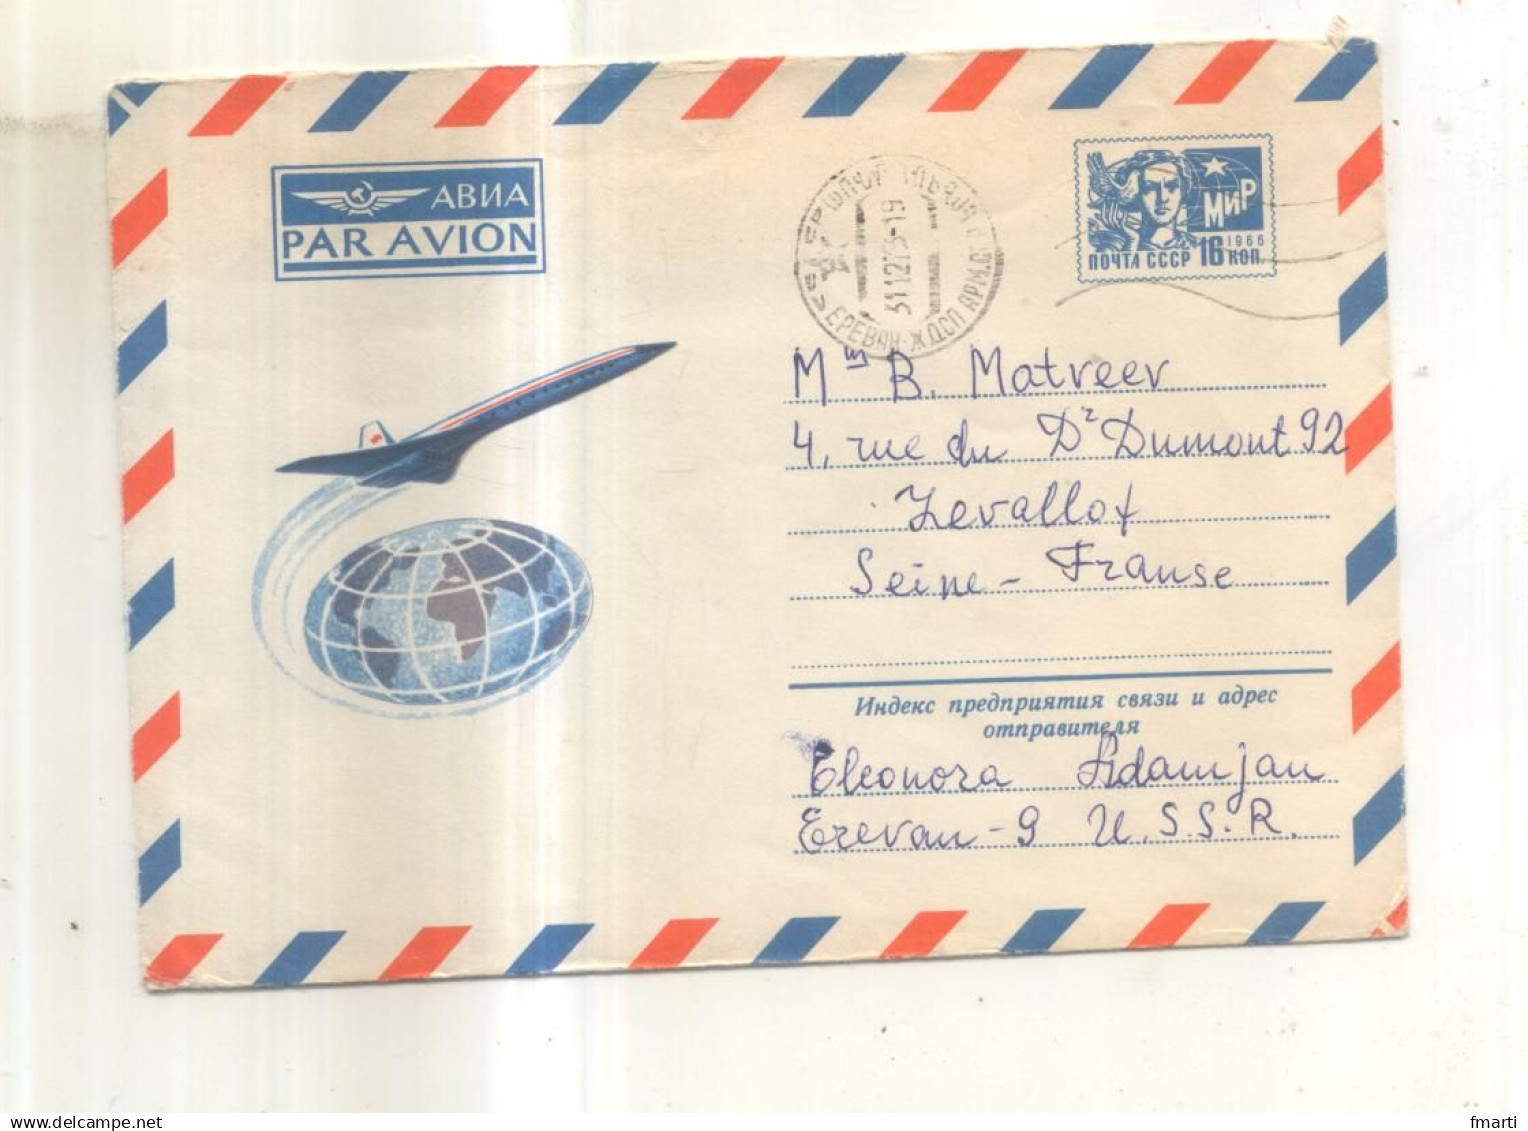 АВИА
PAR AVION
МИР
1966
ПОЧТА СССР 16 КОП.
ЕРЕВАН-ЖДСП АРМ.
Mᵐ B. Matveev
4, rue du Dʳ Dumont 92
Levallox
Seine - Franse
Индекс предприятия связи и адрес
отправителя
Eleonora Adamjan
Erevan - 9 U.S.S.R.
fmarti